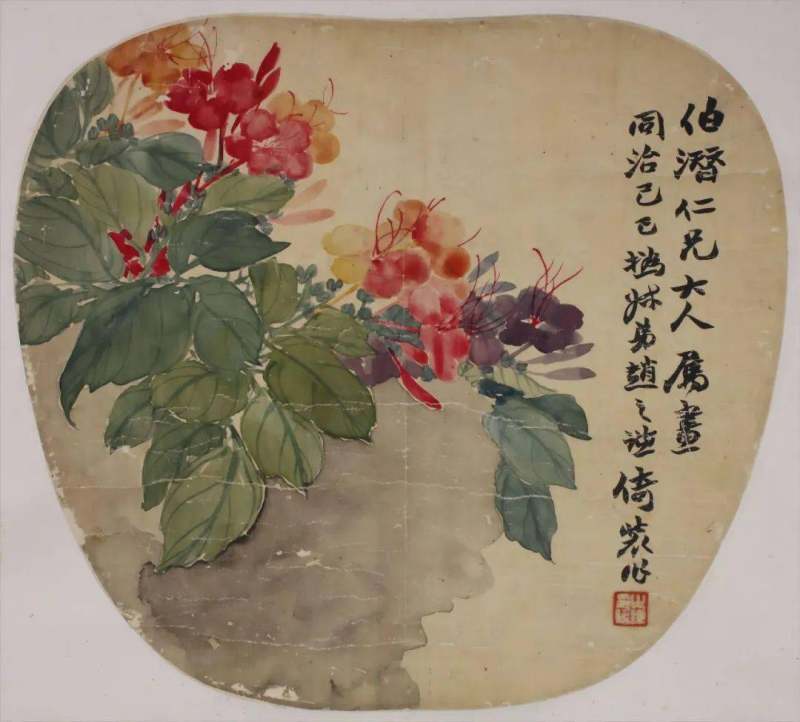 伯濳仁兄大人屬畫
同治己巳弟趙之謙倚裝作